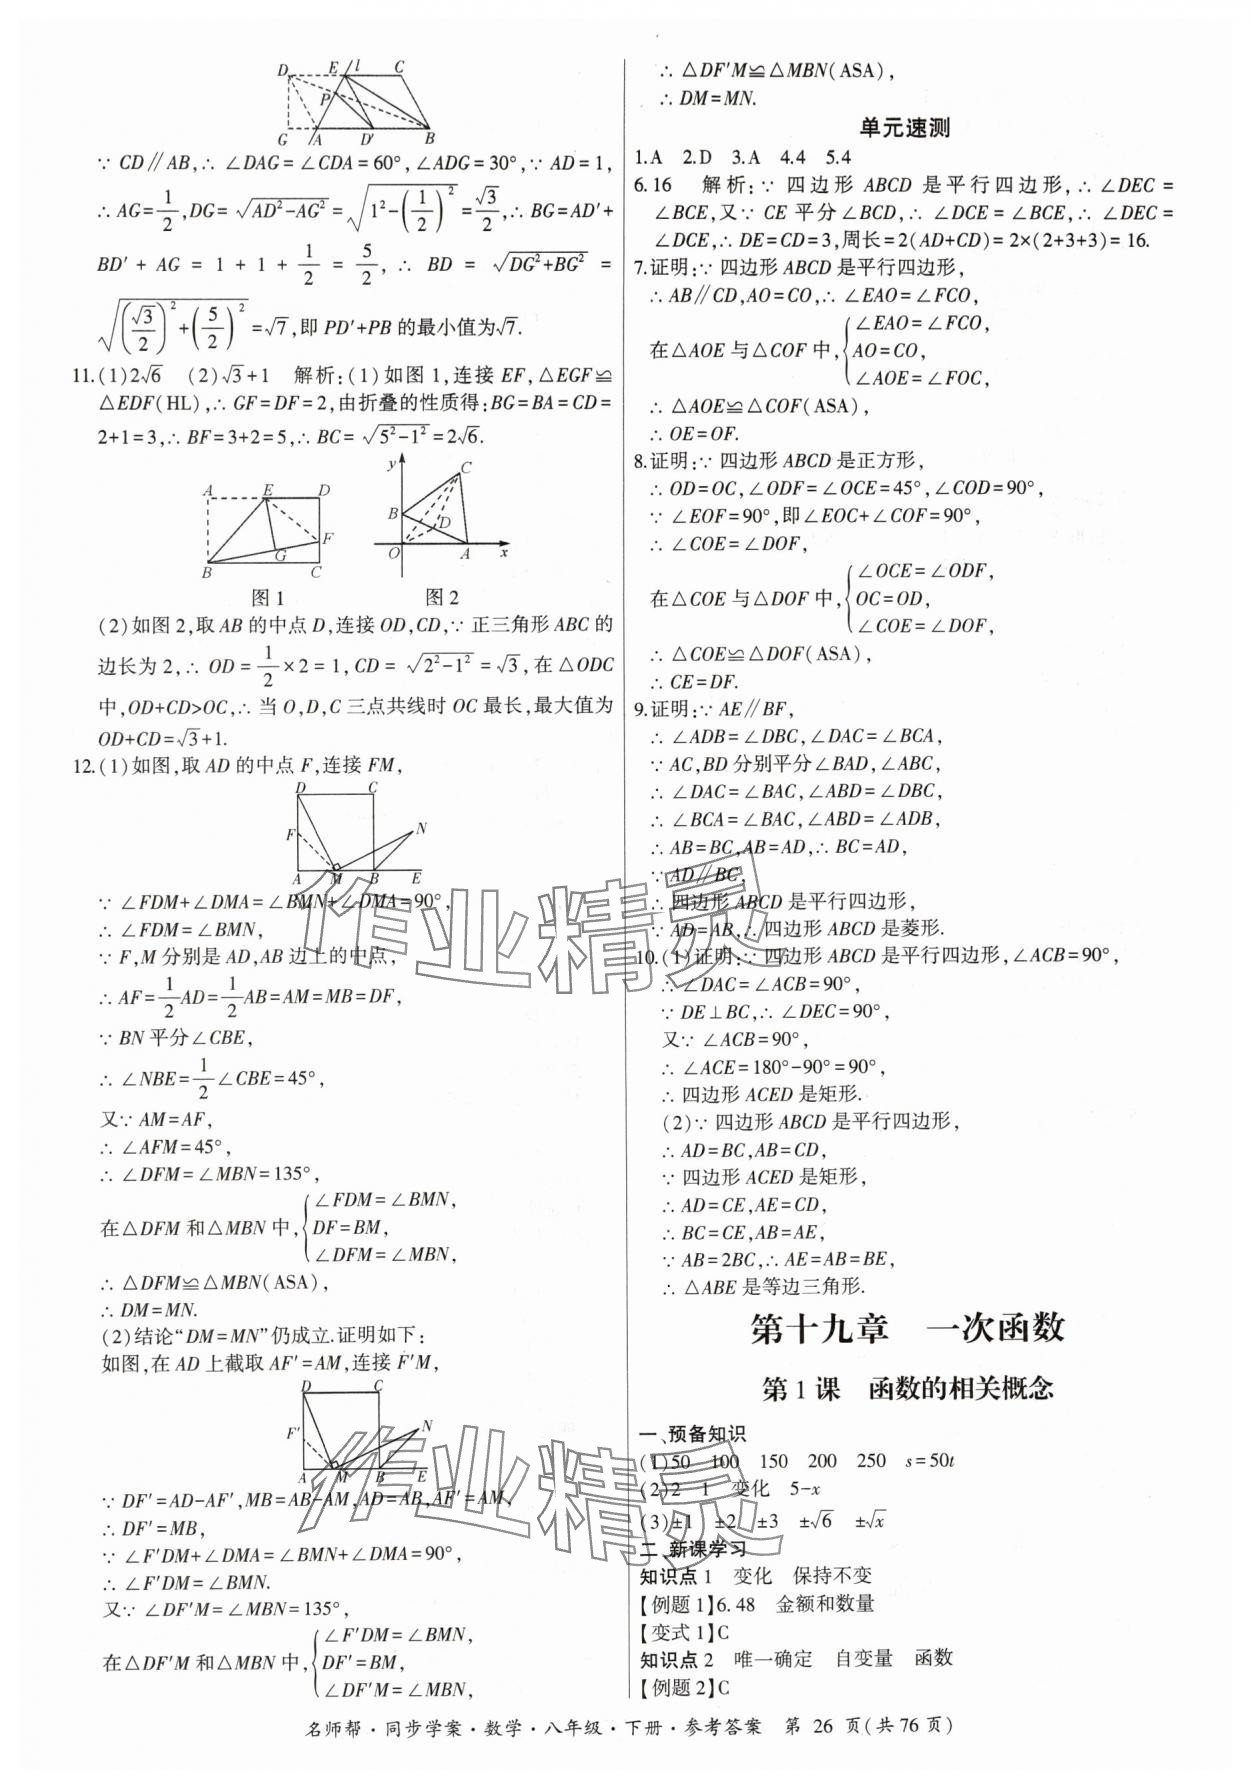 D E l C
P
G A D′ B
∵ CD∥AB,∴ ∠DAG=∠CDA=60°,∠ADG=30°,∵ AD=1,
∴ AG=1/2,DG=√(AD²-AG²)=√(1²-(1/2)²)=√3/2,∴ BG=AD′+
BD′+AG=1+1+1/2=5/2,∴ BD=√(DG²+BG²)=
√((√3/2)²+(5/2)²)=√7,即 PD′+PB 的最小值为√7.
11.(1)2√6 (2)√3+1 解析:(1)如图1,连接 EF,△EGF≌
△EDF(HL),∴ GF=DF=2,由折叠的性质得:BG=BA=CD=
2+1=3,∴ BF=3+2=5,∴ BC=√(5²-1²)=2√6.
A E D F G B C
y C B D O A x
图1 图2
(2)如图2,取 AB 的中点 D,连接 OD,CD,∵ 正三角形 ABC 的
边长为2,∴ OD=1/2×2=1,CD=√(2²-1²)=√3,在△ODC
中,OD+CD>OC,∴ 当 O,D,C 三点共线时 OC 最长,最大值为
OD+CD=√3+1.
12.(1)如图,取 AD 的中点 F,连接 FM,
D C
F N
A M B E
∵ ∠FDM+∠DMA=∠BMN+∠DMA=90°,
∴ ∠FDM=∠BMN,
∵ F,M 分别是 AD,AB 边上的中点,
∴ AF=1/2AD=1/2AB=AM=MB=DF,
∵ BN 平分∠CBE,
∴ ∠NBE=1/2∠CBE=45°,
又∵ AM=AF,
∴ ∠AFM=45°,
∴ ∠DFM=∠MBN=135°,
在△DFM 和△MBN 中,{∠FDM=∠BMN,
DF=BM,
∠DFM=∠MBN,
∴ △DFM≌△MBN(ASA),
∴ DM=MN.
(2)结论“DM=MN”仍成立.证明如下:
如图,在 AD 上截取 AF′=AM,连接 F′M,
D C
F′ N
A M B E
∵ DF′=AD-AF′,MB=AB-AM,AD=AB,AF′=AM,
∴ DF′=MB,
∵ ∠F′DM+∠DMA=∠BMN+∠DMA=90°,
∴ ∠F′DM=∠BMN.
又∵ ∠DF′M=∠MBN=135°,
在△DF′M 和△MBN 中,{∠F′DM=∠BMN,
DF′=BM,
∠DF′M=∠MBN,
∴ △DF′M≌△MBN(ASA),
∴ DM=MN.
单元速测
1.A 2.D 3.A 4.4 5.4
6.16 解析:∵ 四边形 ABCD 是平行四边形,∴ ∠DEC=
∠BCE,又∵ CE 平分∠BCD,∴ ∠DCE=∠BCE,∴ ∠DEC=
∠DCE,∴ DE=CD=3,周长=2(AD+CD)=2×(2+3+3)=16.
7.证明:∵ 四边形 ABCD 是平行四边形,
∴ AB∥CD,AO=CO,∴ ∠EAO=∠FCO,
在△AOE 与△COF 中,{∠EAO=∠FCO,
AO=CO,
∠AOE=∠FOC,
∴ △AOE≌△COF(ASA),
∴ OE=OF.
8.证明:∵ 四边形 ABCD 是正方形,
∴ OD=OC,∠ODF=∠OCE=45°,∠COD=90°,
∵ ∠EOF=90°,即∠EOC+∠COF=90°,
∴ ∠COE=∠DOF,
在△COE 与△DOF 中,{∠OCE=∠ODF,
OC=OD,
∠COE=∠DOF,
∴ △COE≌△DOF(ASA),
∴ CE=DF.
9.证明:∵ AE∥BF,
∴ ∠ADB=∠DBC,∠DAC=∠BCA,
∵ AC,BD 分别平分∠BAD,∠ABC,
∴ ∠DAC=∠BAC,∠ABD=∠DBC,
∴ ∠BCA=∠BAC,∠ABD=∠ADB,
∴ AB=BC,AB=AD,∴ BC=AD,
∵ AD∥BC,
∴ 四边形 ABCD 是平行四边形,
∵ AD=AB,∴ 四边形 ABCD 是菱形.
10.(1)证明:∵ 四边形 ABCD 是平行四边形,∠ACB=90°,
∴ ∠DAC=∠ACB=90°,
∵ DE⊥BC,∴ ∠DEC=90°,
又∵ ∠ACB=90°,
∴ ∠ACE=180°-90°=90°,
∴ 四边形 ACED 是矩形.
(2)∵ 四边形 ABCD 是平行四边形,
∴ AD=BC,AB=CD,
∵ 四边形 ACED 是矩形,
∴ AD=CE,AE=CD,
∴ BC=CE,AB=AE,
∵ AB=2BC,∴ AE=AB=BE,
∴ △ABE 是等边三角形.
第十九章 一次函数
第1课 函数的相关概念
一、预备知识
(1)50 100 150 200 250 s=50t
(2)2 1 变化 5-x
(3)±1 ±2 ±3 ±√6 ±√x
二、新课学习
知识点1 变化 保持不变
【例题1】6.48 金额和数量
【变式1】C
知识点2 唯一确定 自变量 函数
【例题2】C
名师帮·同步学案·数学·八年级·下册·参考答案 第 26 页(共76页)
作业精灵
作业精灵